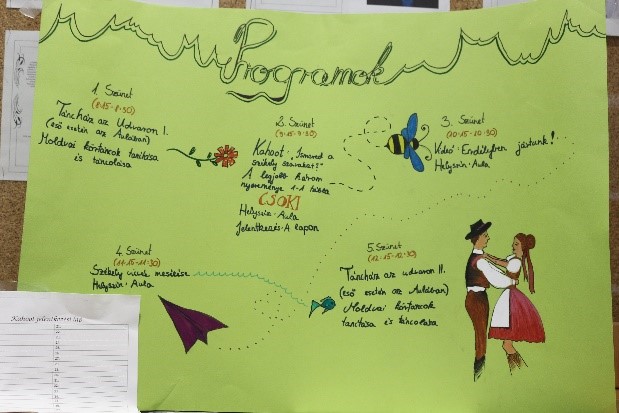 Programok
1. Szünet
(8.15-8.30)
Táncház az Udvaron I.
(eső esetén az Aulában)
Moldvai körtáncok tanítása
és táncolása
2. Szünet
(9.15-9.30)
Kahoot "Ismered a
székely szavakat?"
A legjobb három
nyereménye 1-1 tábla
CSOKI
Helyszín: Aula
Jelentkezés: A lapon
3. Szünet
(10.15-10.30)
Videó: Erdélyben jártunk!
Helyszín: Aula
4. Szünet
(11.15-11.30)
Székely viccek mesélése
Helyszín: Aula
5. Szünet
(12.15-12.30)
Táncház az udvaron II.
(eső esetén az Aulában)
Moldvai körtáncok
tanítása és táncolása
Kahoot jelentkezési lap